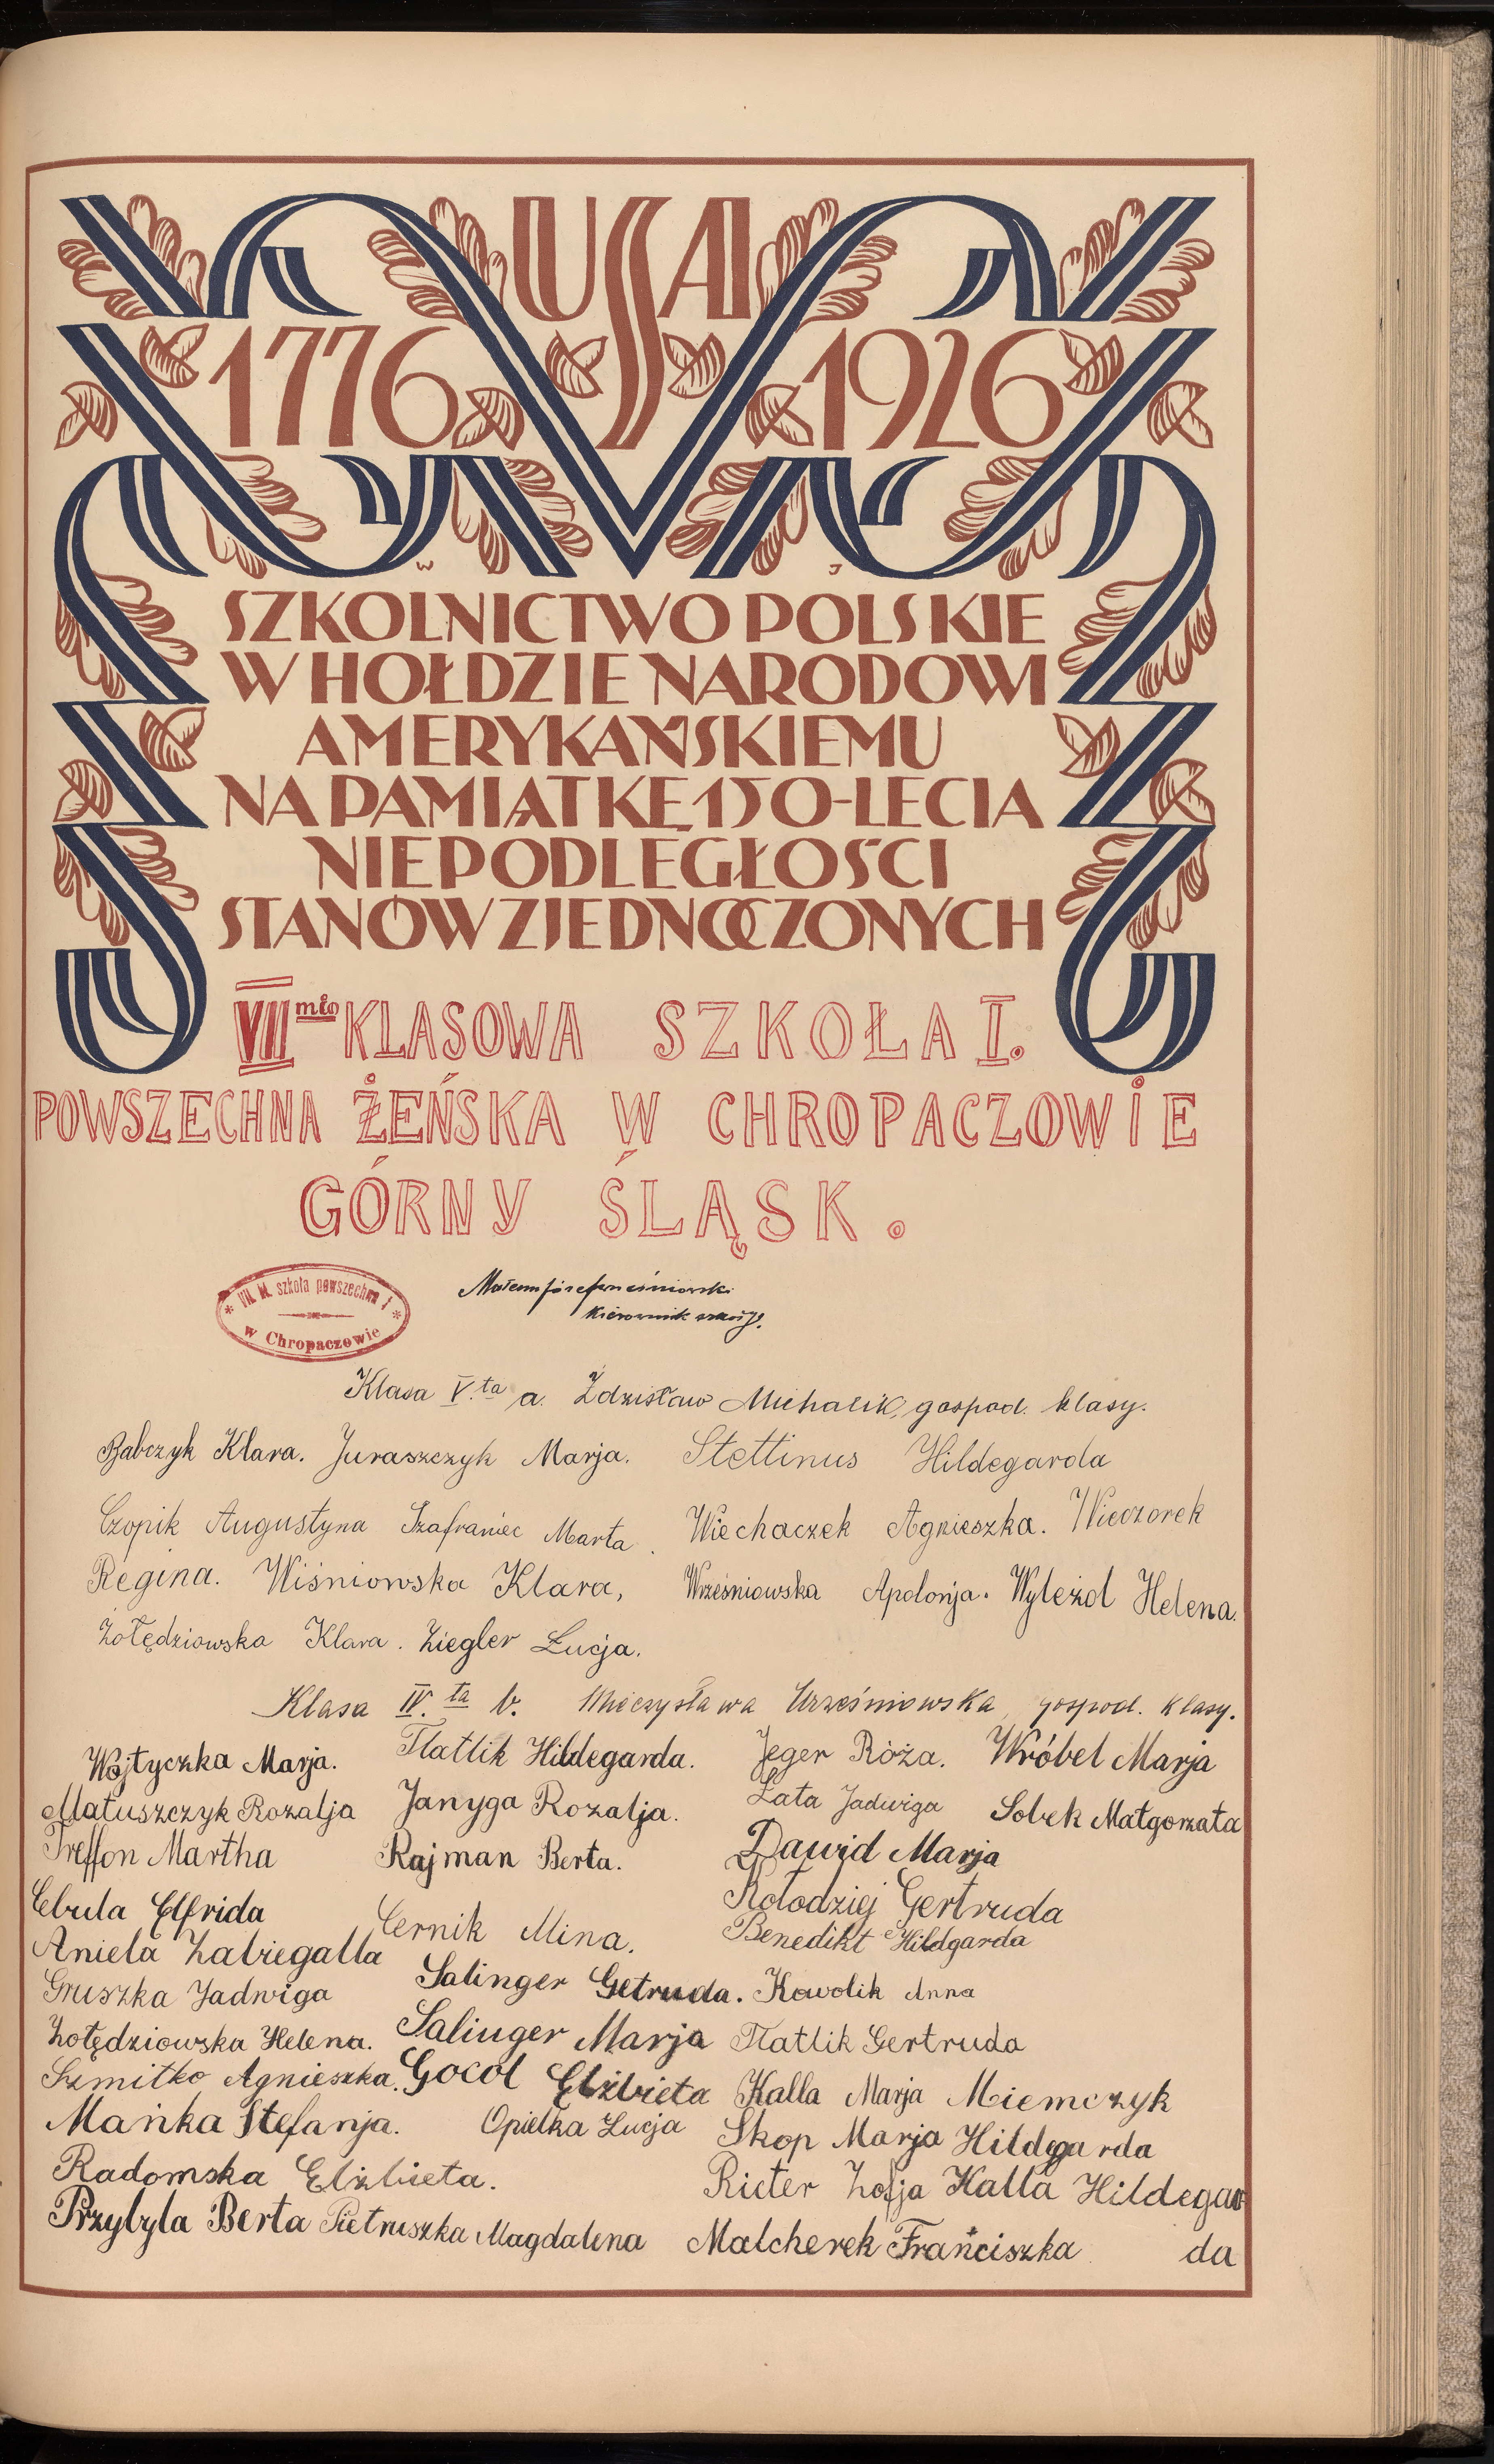 USA
1776 1926
W J
SZKOLNICTWO POLSKIE
W HOŁDZIE NARODOWI
AMERYKAŃSKIEMU
NA PAMIĄTKĘ 150-LECIA
NIEPODLEGŁOŚCI
STANÓW ZJEDNOCZONYCH
VII mio KLASOWA SZKOŁA I.
POWSZECHNA ŻEŃSKA W CHROPACZOWIE
GÓRNY ŚLĄSK.
VII. kl. szkoła powszechna I
w Chropaczowie
kierownik szkoły.
Klasa V.ta a. Zdzisław Michalik, gospod. klasy.
Babczyk Klara. Juraszczyk Marja. Stettinus Hildegarda
Czopik Augustyna Szafraniec Marta. Wiechaczek Agnieszka. Wieczorek
Regina. Wiśniowska Klara, Wrześniowska Apolonja. Wyleżoł Helena.
Żołędziowska Klara. Ziegler Łucja.
Klasa IV.ta b. Mieczysława Wrześniowska, gospod. klasy.
Wojtyczka Marja. Tlatlik Hildegarda. Jeger Róża. Wróbel Marja
Matuszczyk Rozalja Janyga Rozalja. Łata Jadwiga Sobek Małgorzata
Treffon Martha Rajman Berta. Dawid Marja
Cebula Elfrida Cernik Mina. Kołodziej Gertruda
Aniela Zabiegalla Benedikt Hildgarda
Gruszka Jadwiga Salinger Getruda. Kowolik Anna
Żołędziowska Helena. Salinger Marja Tlatlik Gertruda
Szmitko Agnieszka. Gocoł Elżbieta Kalla Marja Miemczyk
Mańka Stefanja. Opiełka Łucja Skop Marja Hildegarda
Radomska Elżbieta. Richter Zofja Kalla Hildegar
Przybyla Berta Pietruszka Magdalena Malcherek Franciszka da